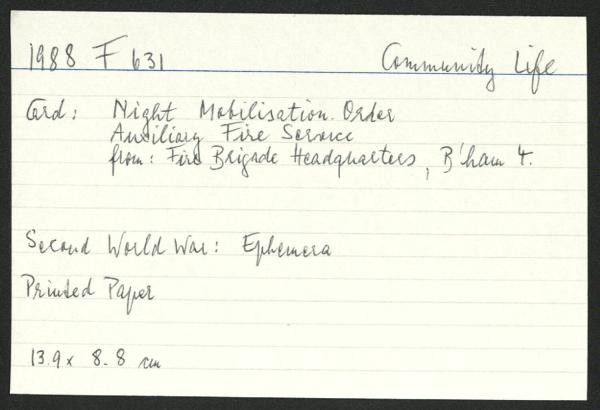 1988 F 631 Community Life
Card: Night Mobilisation Order
Auxiliary Fire Service
from: Fire Brigade Headquarters, B'ham 4.
Second World War: Ephemera
Printed Paper
13.9 x 8.8 cm